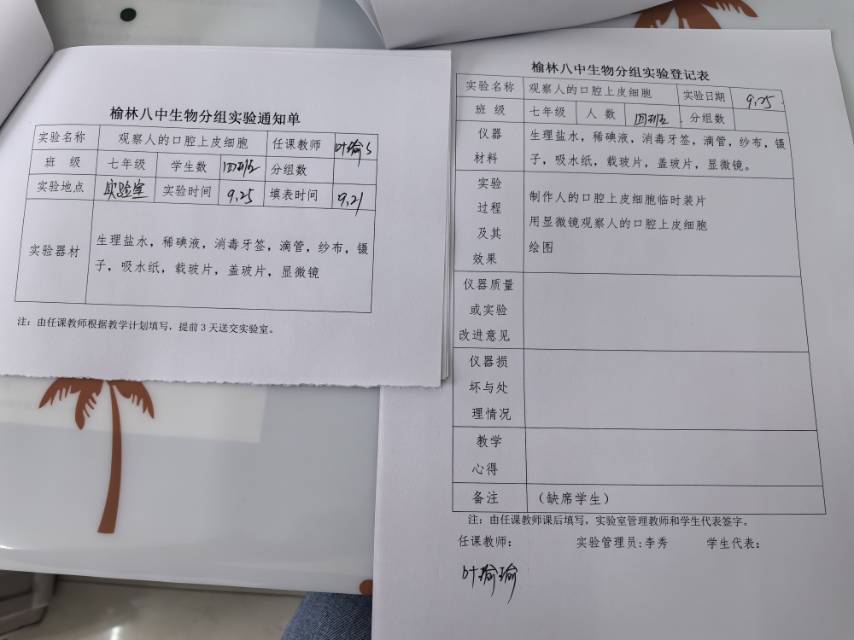 榆林八中生物分组实验通知单
实验名称 观察人的口腔上皮细胞 任课教师
班 级 七年级 学生数 分组数
实验地点 实验室 实验时间 9.25 填表时间 9.21
实验器材 生理盐水，稀碘液，消毒牙签，滴管，纱布，镊
子，吸水纸，载玻片，盖玻片，显微镜
注：由任课教师根据教学计划填写，提前 3 天送交实验室。
榆林八中生物分组实验登记表
实验名称 观察人的口腔上皮细胞 实验日期 9.25
班 级 七年级 人 数 分组数
仪器
材料
生理盐水，稀碘液，消毒牙签，滴管，纱布，镊
子，吸水纸，载玻片，盖玻片，显微镜。
实验
过程
及其
效果
制作人的口腔上皮细胞临时装片
用显微镜观察人的口腔上皮细胞
绘图
仪器质量
或实验
改进意见
仪器损
坏与处
理情况
教学
心得
备注 （缺席学生）
注：由任课教师课后填写，实验室管理教师和学生代表签字。
任课教师： 实验管理员:李秀 学生代表：
叶瑜瑜